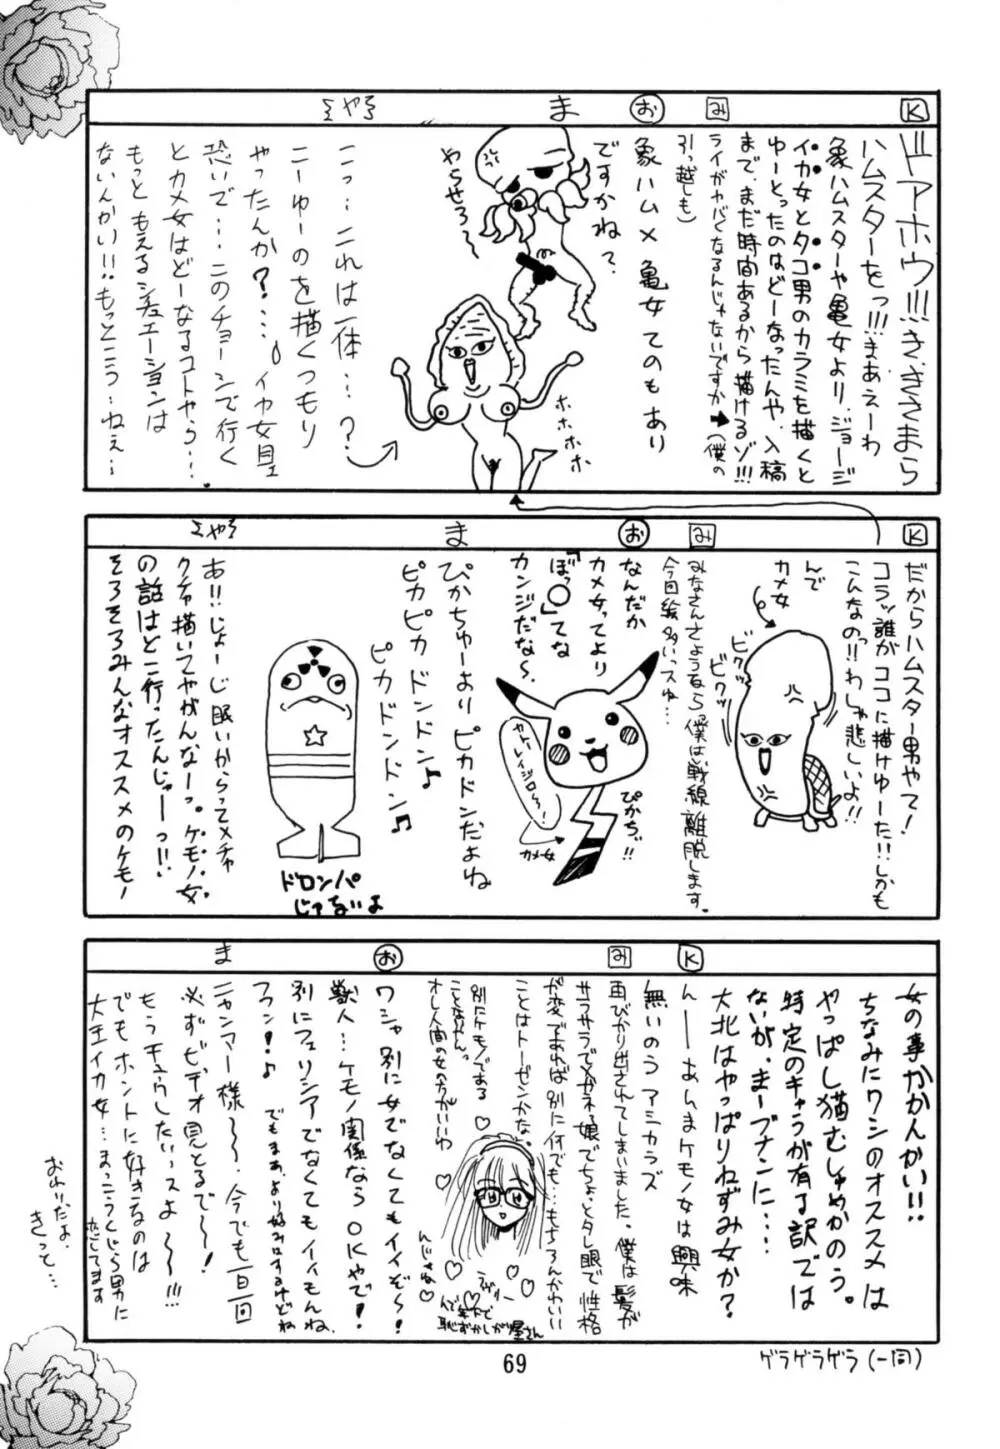 K
ドアホウ!!!き、ききさまら
ハムスターをっ!!!まあえーわ
象ハムスターや亀女より、ジョージ
イカ女とタコ男のカラミを描くと
ゆーとったのはどーなったんや、入稿
まで、まだ時間あるから描けるゾ!!!
み
ライがヤバくなるんじゃないですか➡(僕の
引っ越しも)
お
象ハム×亀女てのもあり
ですかね?
ま
やらせろ~
ホホホホホ
ミやろ
こっ…これは一体…?
こーゆーのを描くつもり
やったんか?…。イカ女見
恐いで…このチョーシで行く
とカメ女はどーなるコトやら…
もっともえるシチュエーションは
ないんかい!!もっとこう…ねぇ…
K
だからハムスター男やて!
コラッ誰がココに描けゆーた!!しかも
こんなのっ!!わしゃ悲しいよ!!
んで
カメ女
ビクッ
ビクッ
み
みなさんさようなら「僕は戦線離脱します。
今回絵多いっスね…
お
なんだか
カメ女ってより
「ぼっ〇」てな
カンジだな~、
ぴかぢ!!
カトーレイジロ~~!
カメ女
ま
ぴかちゅーよりピカドンだよね
ピカピカドンドン♪
ピカドンドン♫
ドロンパ
じゃないよ
ミやろ
あ!!じょーじ眠いからってメチャ
クチャ描いてやがんなーっ。ケモノ女
の話はどこ行ったんじゃーっ!!
そろそろみんなオススメのケモノ
女の事かかんかい!!
ちなみにワシのオススメは
やっぱし猫むしゃめかのう。
特定のキャラが有る訳では
ないが、まーブナンに…
大北はやっぱりねずみ女か?
K
んーーあんまケモノ女は興味
無いのうアシカラズ
み
再びかり出されてしまいました。僕は髪が
サラサラでメガネ娘でちょっとタレ眼で性格
が変であれば別に何でも…もちろんかわいい
ことはトーゼンかな。
別にケモノである
ことなかやんっ
オレ人間の女の方がいいわ
んじゃね♡
んで年下で
恥ずかしがり屋さん
お
ワシャ別に女でなくてもイイぞ~!
獣人…ケモノ関係ならOKやで!
別にフェリシアでなくてもイイもんね、
フフン!♪
でもまあ、より好みはするけどね
ま
ニャンマー様~~、今でも一日一回
必ずビデオ見とるで~~!
もうチュウしたいっスよ~~!!!
でもホントに好きなのは
大王イカ女…まっこうくじら男に
恋してます
おわりだよ、
きっと…
ゲラゲラゲラ(一同)
69